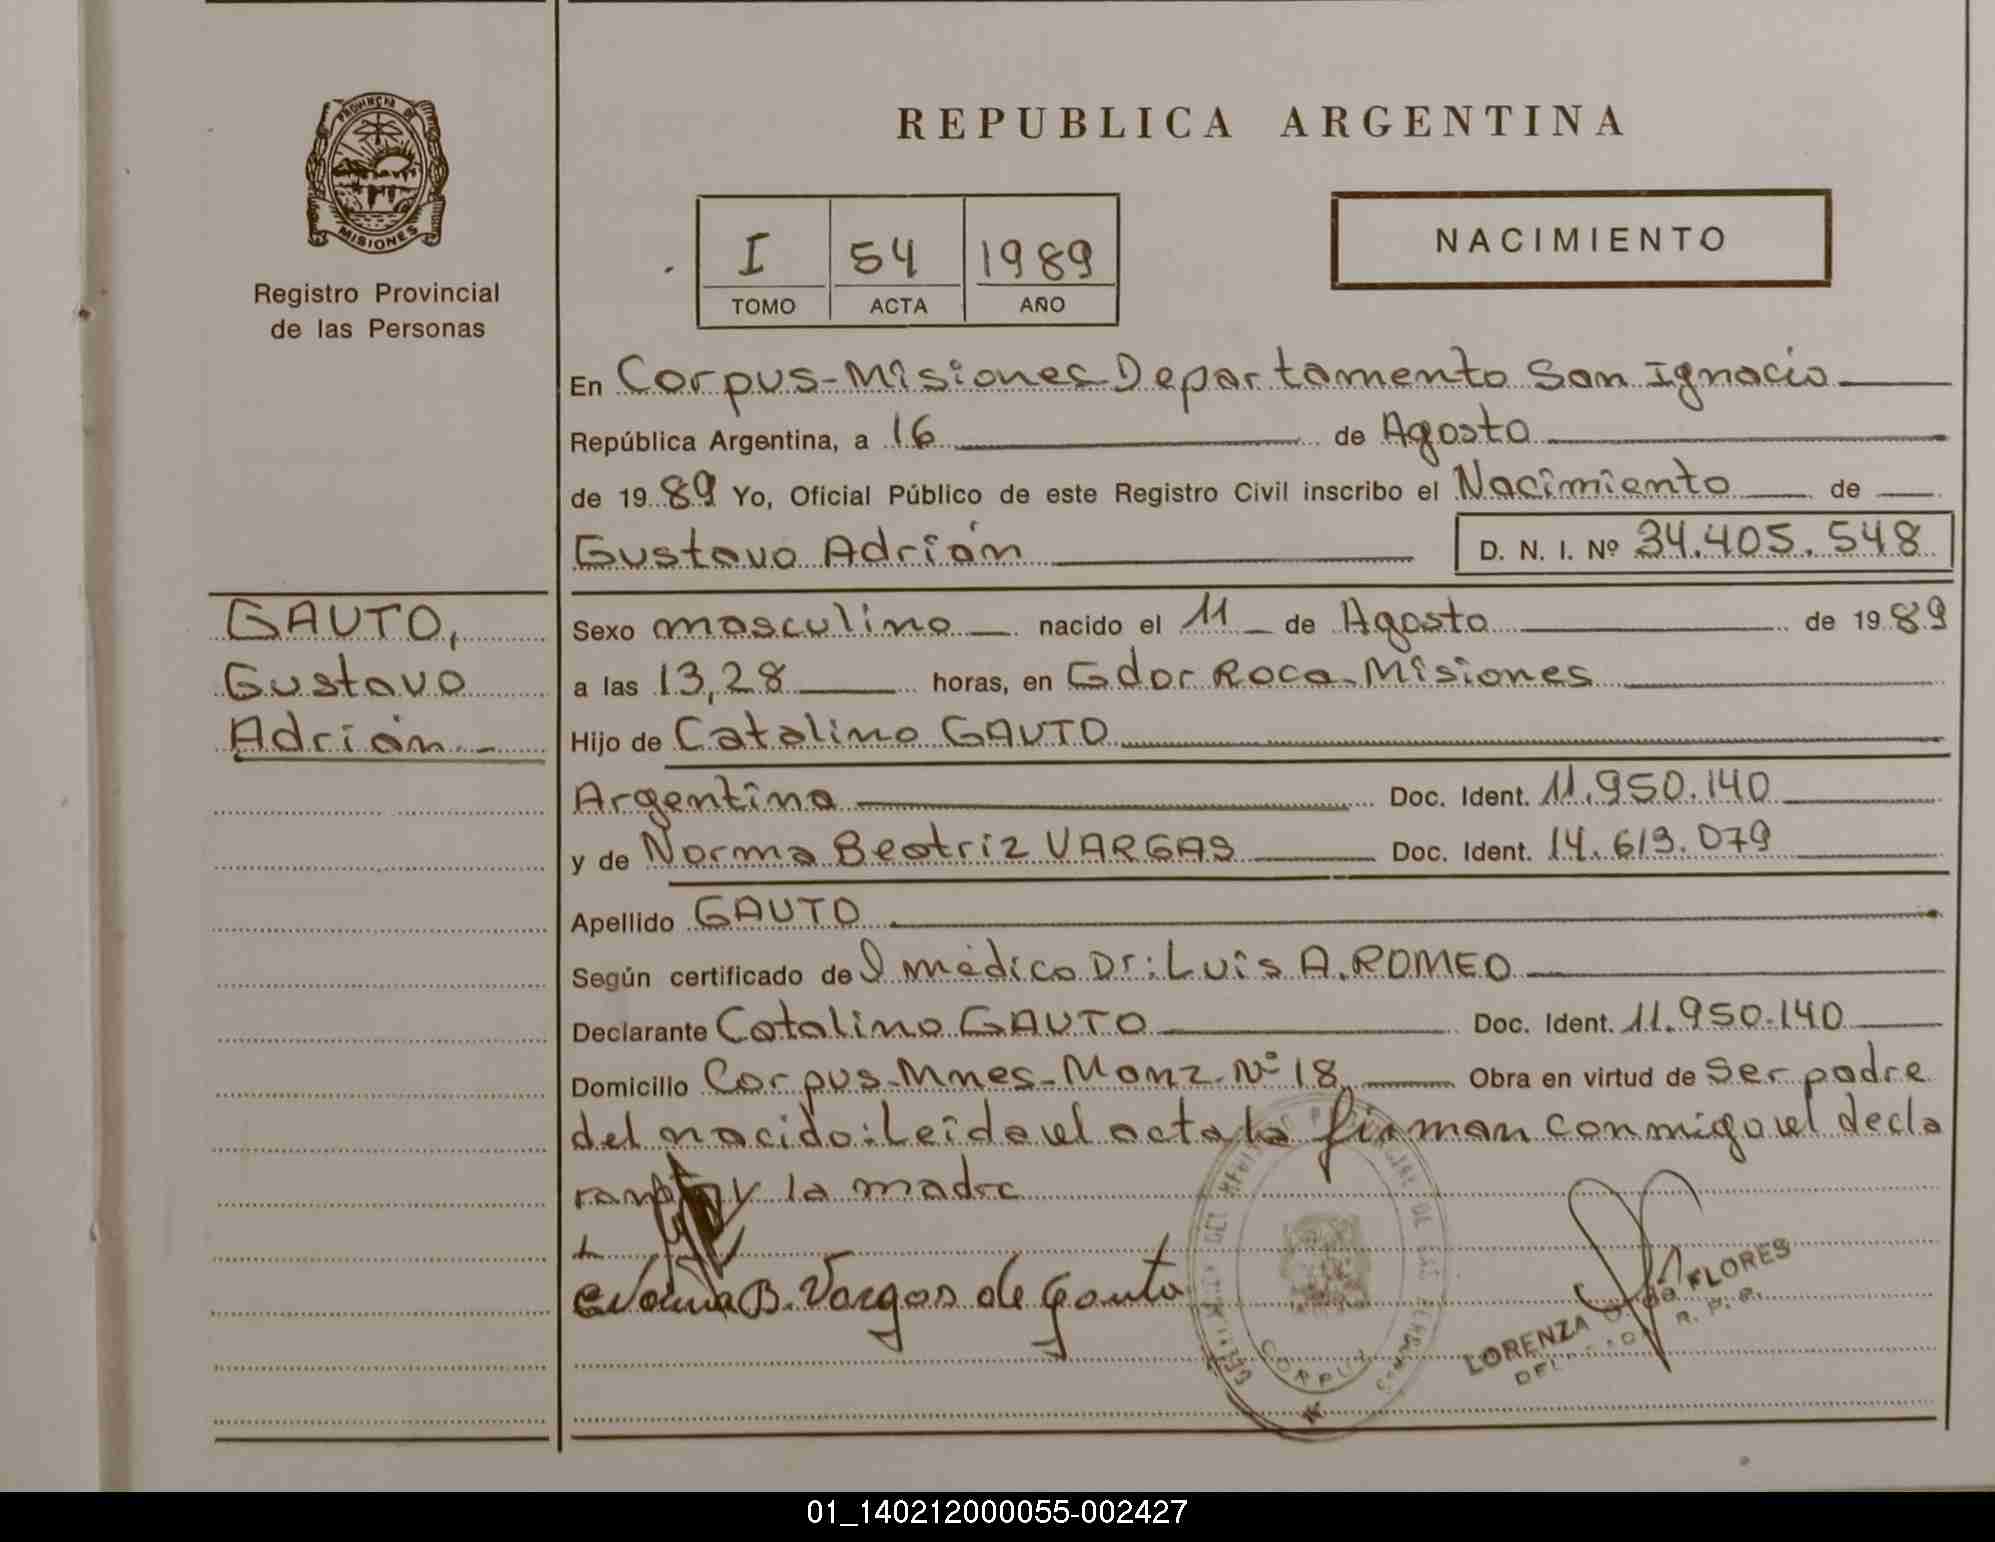 PROVINCIA DE
MISIONES
Registro Provincial
de las Personas
REPUBLICA ARGENTINA
I 54 1989
TOMO ACTA AÑO
NACIMIENTO
En Corpus-Misiones Departamento San Ignacio
República Argentina, a 16 de Agosto
de 1989 Yo, Oficial Público de este Registro Civil inscribo el Nacimiento de
Gustavo Adrián D. N. I. Nº 34.405.548
GAUTO,
Gustavo
Adrián.-
Sexo masculino nacido el 11 de Agosto de 1989
a las 13,28 horas, en Gdor Roca-Misiones
Hijo de Catalino GAUTO
Argentina Doc. Ident. 11.950.140
y de Norma Beatriz VARGAS Doc. Ident. 14.613.079
Apellido GAUTO
Según certificado del médico Dr: Luis A. ROMEO
Declarante Catalino GAUTO Doc. Ident. 11.950.140
Domicilio Corpus-Mnes-Manz. Nº 18 Obra en virtud de ser padre
del nacido: Leída el acta la firman conmigo el decla
y la madre
B. Vargas de Gauto
CORPUS
LORENZA FLORES
01_140212000055-002427